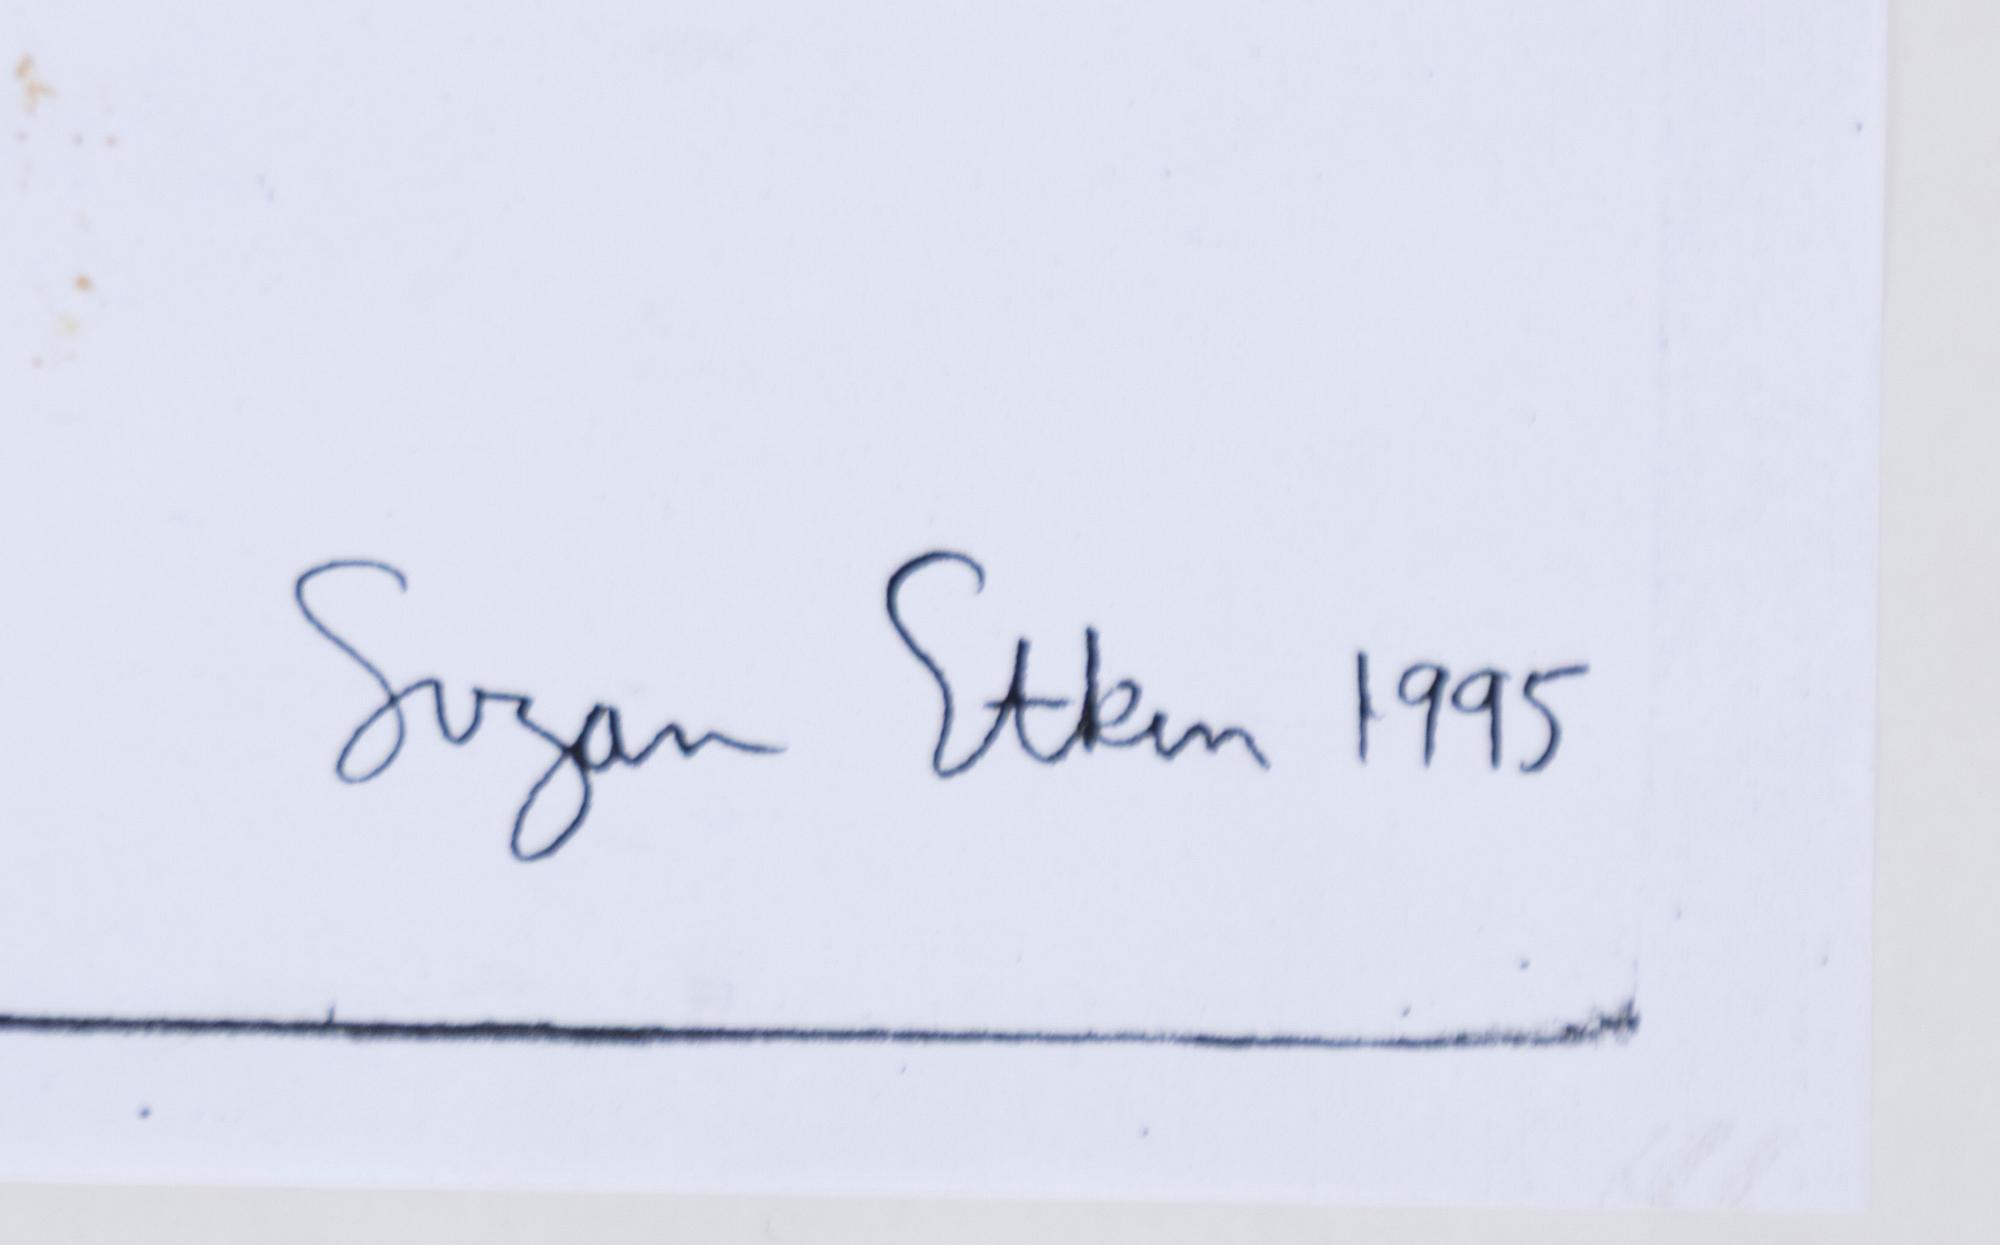 Suzan Etkin 1995